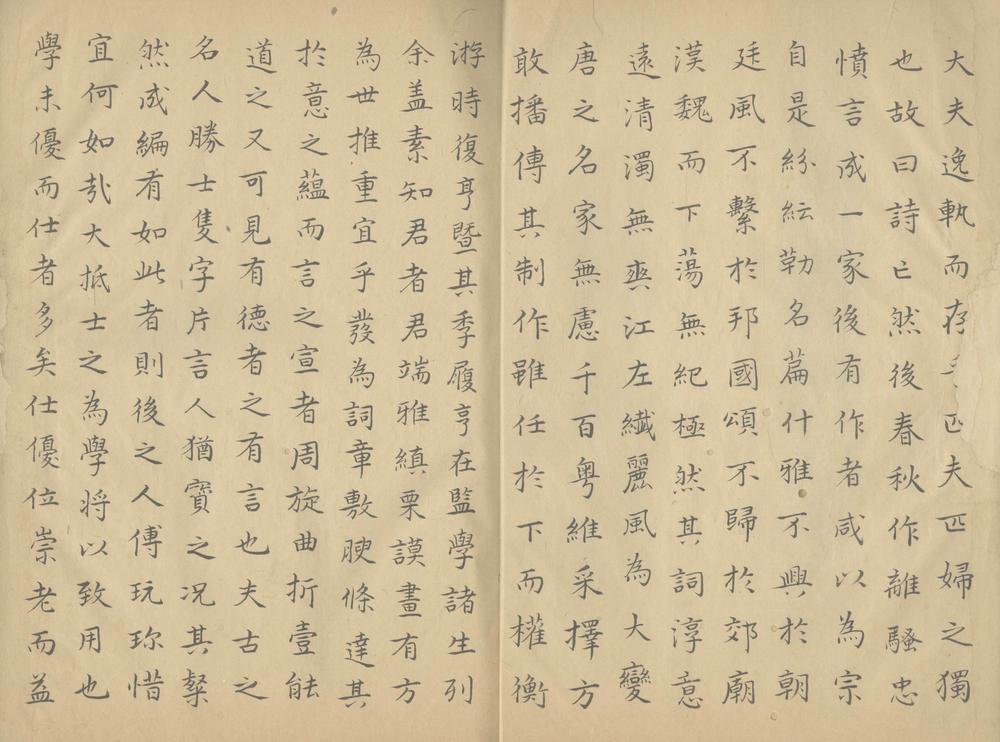 大夫逸軌而存匹夫匹婦之獨
也故曰詩亡然後春秋作離騷忠
憤言成一家後有作者咸以為宗
自是紛紜勒名篇什雅不興於朝
廷風不繫於邦國頌不歸於郊廟
漢魏而下蕩無紀極然其詞淳意
遠清濁無爽江左纖麗風為大變
唐之名家無慮千百粵維采擇方
敢播傳其制作雖任於下而權衡
游時復亨暨其季履亨在監學諸生列
余盖素知君者君端雅縝栗謨畫有方
為世推重宜乎發為詞章敷腴條達其
於意之蘊而言之宣者周旋曲折壹能
道之又可見有德者之有言也夫古之
名人勝士隻字片言人猶寶之况其粲
然成編有如此者則後之人傳玩珎惜
宜何如㢤大抵士之為學将以致用也
學未優而仕者多矣仕優位崇老而益